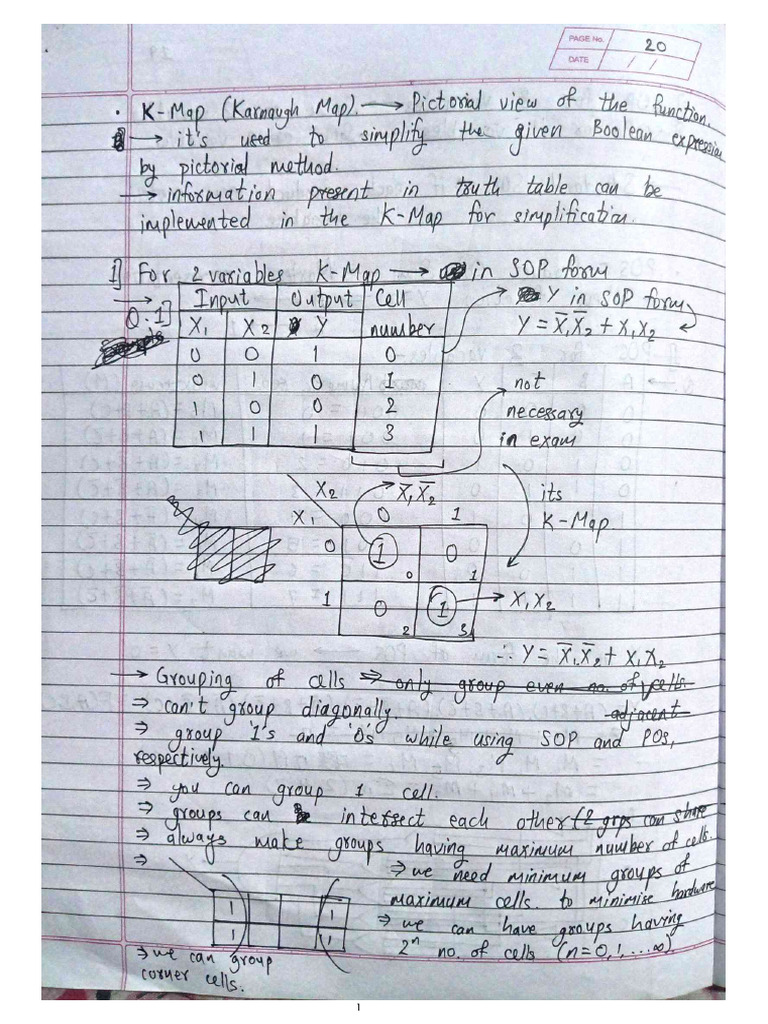 PAGE No. 20
DATE / /
• K-Map (Karnaugh Map). → Pictorial view of the function.
→ it's used to simplify the given Boolean expression
by pictorial method.
→ information present in truth table can be
implemented in the K-Map for simplification.
1] For 2 variables K-Map → in SOP form
→ Input Output Cell → Y in SOP form
Q.1] X₁ X₂ Y number Y = X̅₁X̅₂ + X₁X₂
0 0 1 0
0 1 0 1 → not
1 0 0 2 necessary
1 1 1 3 in exam
X₂ X̅₁X̅₂ its
X₁ 0 1 K-Map
0 1 0
0 1
1 0 1 → X₁X₂
2 3
∴ Y = X̅₁X̅₂ + X₁X₂
→ Grouping of cells ⇒ only group even no. of cells.
⇒ can't group diagonally. adjacent
⇒ group '1's and '0's while using SOP and POS,
respectively.
⇒ you can group 1 cell.
⇒ groups can intersect each other (2 grps can share
⇒ always make groups having maximum number of cells.
⇒ ⇒ we need minimum groups of
maximum cells. to minimise hardware
1 1
1 1
⇒ we can have groups having
2ⁿ no. of cells (n=0,1,...∞)
⇒ we can group
corner cells.
1